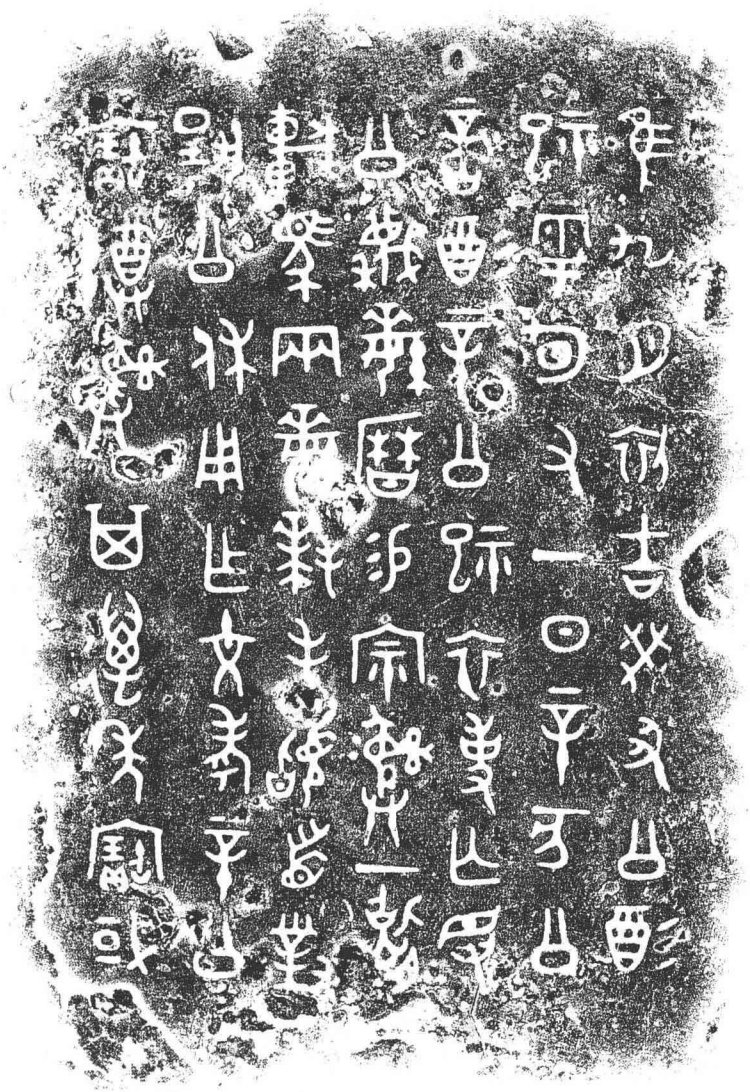 隹九月初吉癸丑公酻
祀雩旬又一日辛亥公
啻酻辛公祀卒事亡尤
公蔑繁曆易宗彝一肆
車馬兩繁拜手稽首對
揚公休用乍文考辛公
寶尊彝其萬年寶或